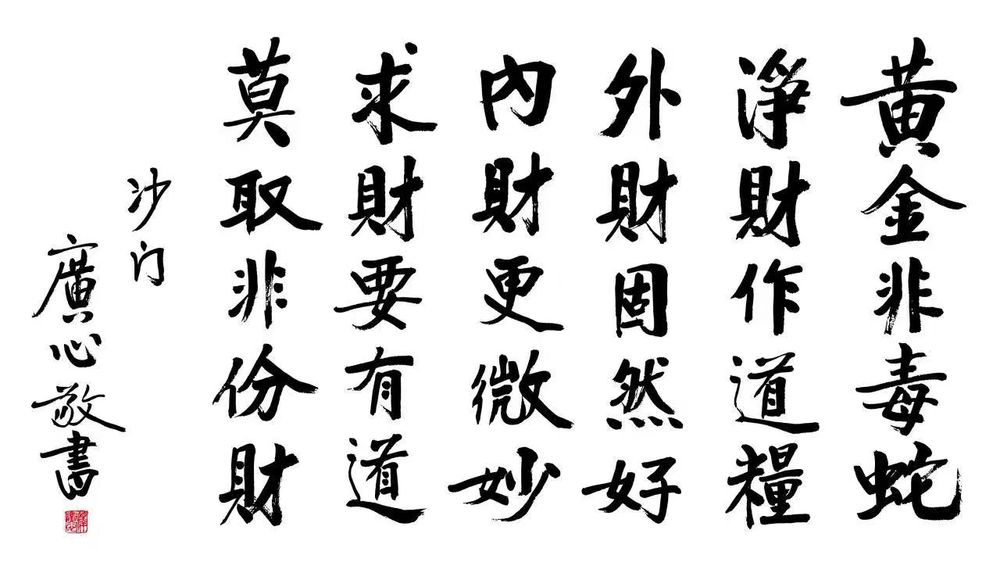 黄金非毒蛇
淨財作道糧
外財固然好
內財更微妙
求財要有道
莫取非份財
沙门
廣心敬書